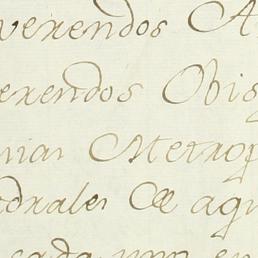 verendos A
erendos Obis
nias Metrop
edrales de aqu
cada uno en